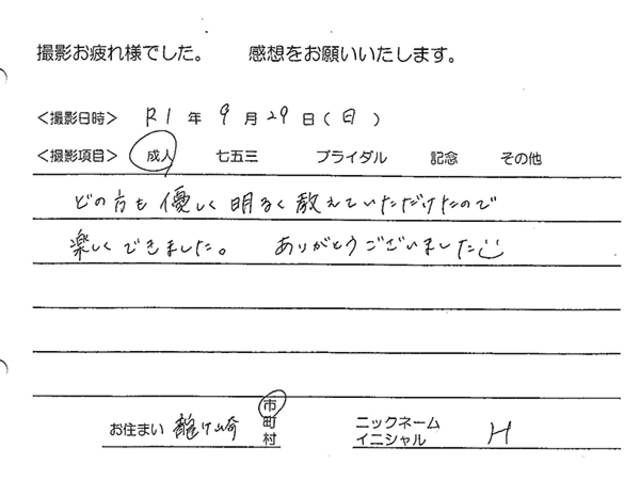 撮影お疲れ様でした。 感想をお願いいたします。
<撮影日時> R1 年 9 月 29 日 ( 日 )
<撮影項目> 成人 七五三 ブライダル 記念 その他
どの方も 優しく 明るく 教えていただけたので
楽しく できました。 ありがとうございました
お住まい 龍ケ崎 市町村 ニックネーム イニシャル H